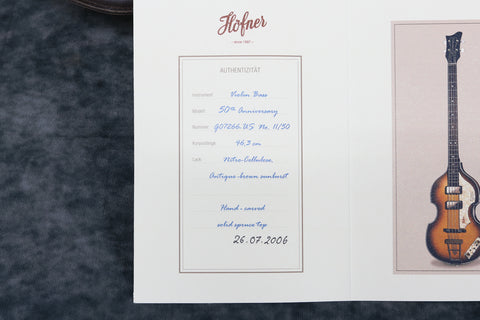 Höfner
- since 1887 -
AUTHENTIZITÄT
Instrument Violin Bass
Modell 50th Anniversary
Nummer G07266-US No. 11/50
Korpuslänge 46,3 cm
Lack Nitro-Cellulose,
Antique-brown sunburst
Hand-carved
solid spruce top
26.07.2006